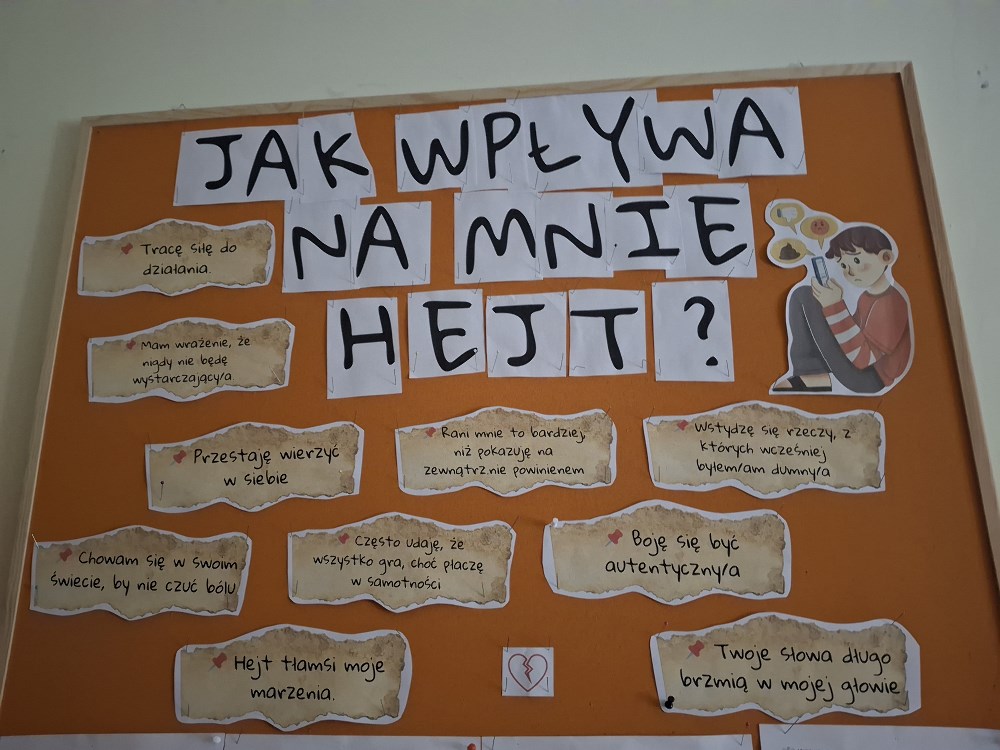 JAK WPŁYWA
NA MNIE
HEJT?
Tracę siłę do
działania.
Mam wrażenie, że
nigdy nie będę
wystarczający/a
Przestaję wierzyć
w siebie
Rani mnie to bardziej,
niż pokazuję na
zewnątrz.nie powinienem
Wstydzę się rzeczy, z
których wcześniej
byłem/am dumny/a
Chowam się w swoim
świecie, by nie czuć bólu
Często udaję, że
wszystko gra, choć płaczę
w samotności
Boję się być
autentyczny/a
Hejt tłamsi moje
marzenia.
Twoje słowa długo
brzmią w mojej głowie